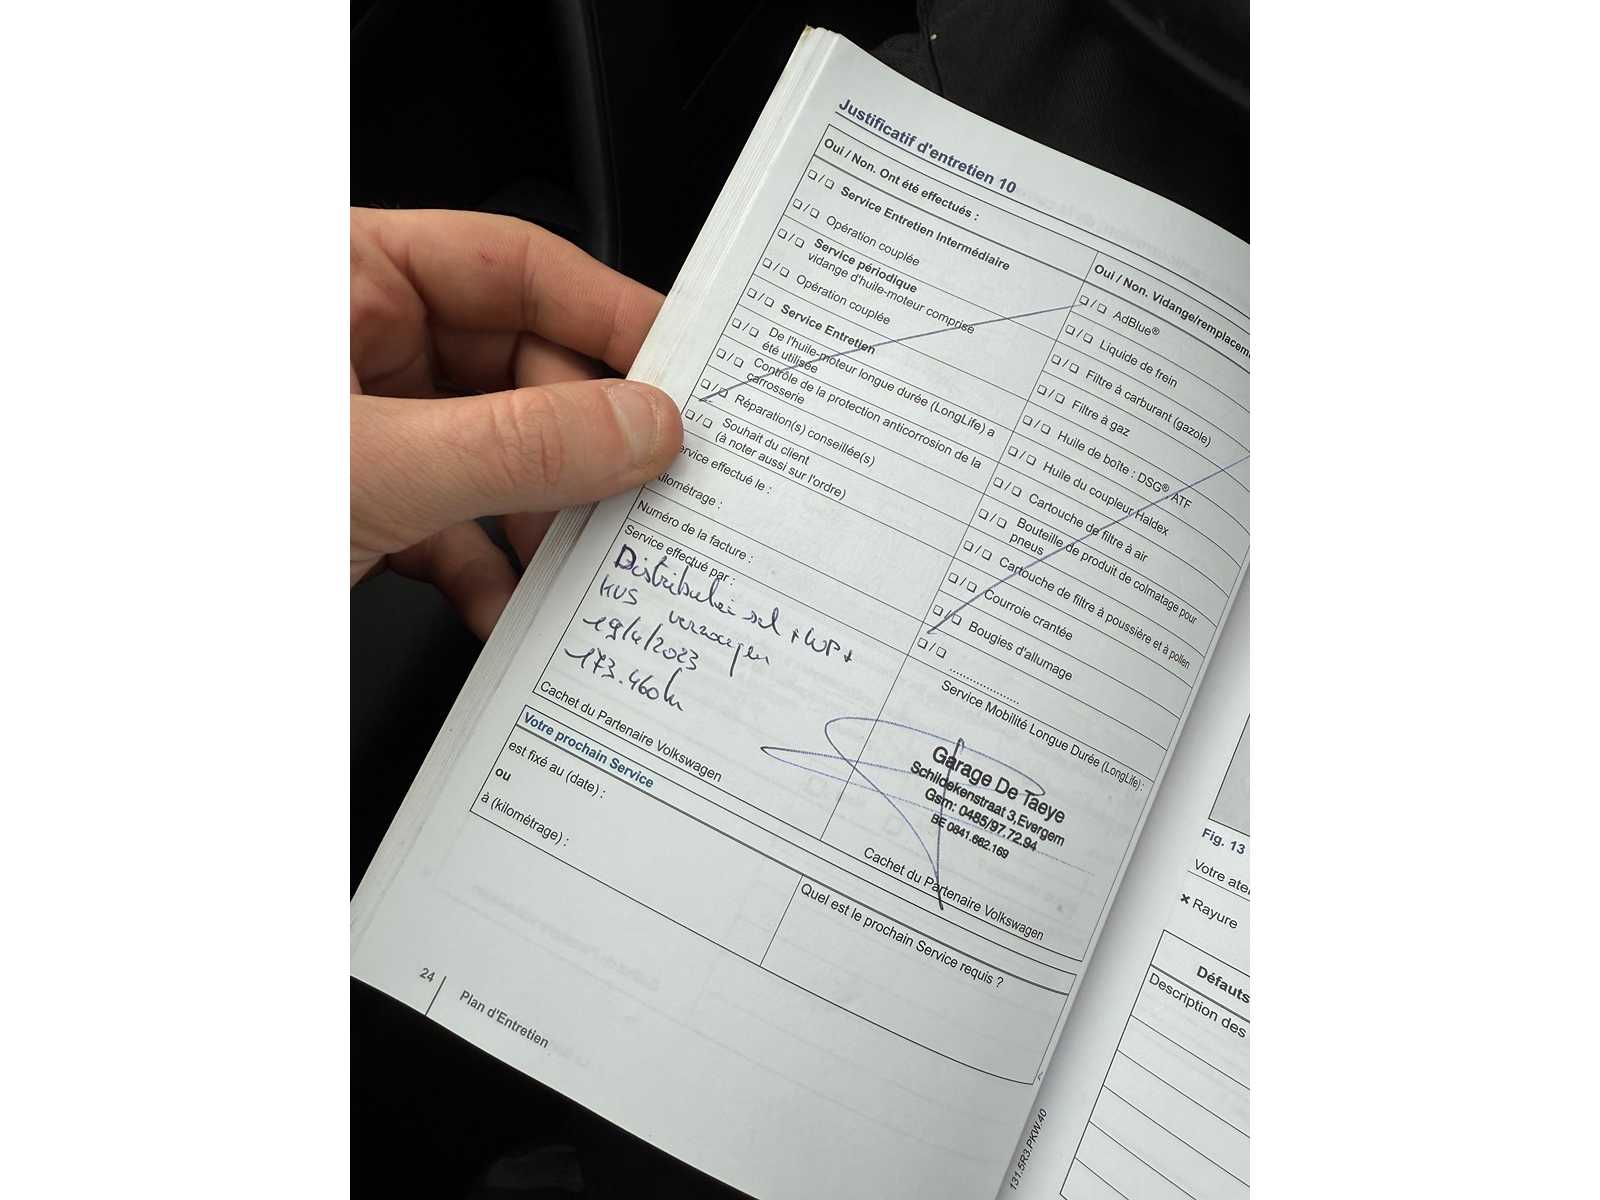 Justificatif d'entretien 10
Oui / Non. Ont été effectués :
❑ / ❑ Service Entretien Intermédiaire
❑ / ❑ Opération couplée
❑ / ❑ Service périodique
vidange d'huile-moteur comprise
❑ / ❑ Opération couplée
❑ / ❑ Service Entretien
❑ / ❑ De l'huile-moteur longue durée (LongLife) a
été utilisée
❑ / ❑ Contrôle de la protection anticorrosion de la
carrosserie
❑ / ❑ Réparation(s) conseillée(s)
❑ / ❑ Souhait du client
(à noter aussi sur l'ordre)
ervice effectué le :
ilométrage :
Numéro de la facture :
Service effectué par :
Distributie set + WP +
KVS vervangen
19/4/2023
173.460km
Cachet du Partenaire Volkswagen
Oui / Non. Vidange/remplacem
❑ / ❑ AdBlue®
❑ / ❑ Liquide de frein
❑ / ❑ Filtre à carburant (gazole)
❑ / ❑ Filtre à gaz
❑ / ❑ Huile de boîte : DSG® ATF
❑ / ❑ Huile du coupleur Haldex
❑ / ❑ Cartouche de filtre à air
❑ / ❑ Bouteille de produit de colmatage pour
pneus
❑ / ❑ Cartouche de filtre à poussière et à pollen
❑ / ❑ Courroie crantée
❑ / ❑ Bougies d'allumage
❑ / ❑ ......................
Service Mobilité Longue Durée (LongLife) :
Garage De Taeye
Schildekenstraat 3,Evergem
Gsm: 0485/97.72.94
BE 0841.662.169
Cachet du Partenaire Volkswagen
Votre prochain Service
est fixé au (date) :
ou
à (kilométrage) :
Quel est le prochain Service requis ?
24
Plan d'Entretien
131.5R3.PKW.40
Fig. 13
Votre ate
× Rayure
Défauts
Description des